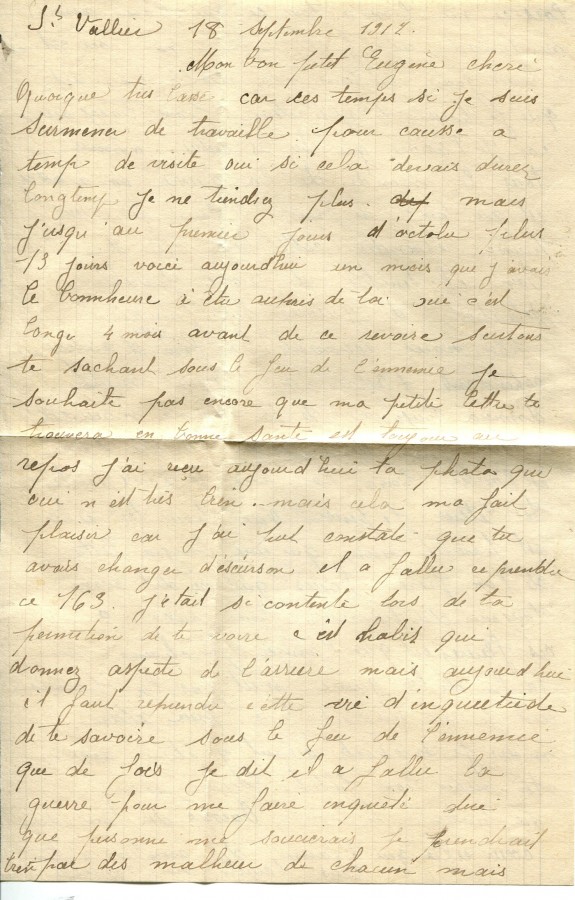 St Vallier 18 Septembre 1917.
Mon bon petit Eugène cheri
Quoique tres lasse car ces temps si je suis
Surmener de travaille pour causse a
temp de visite oui si cela devais durez
longtemp je ne tiendrez plus. mais
j'usqu'au premier jours d'octobre plus
13 jours voici aujourd'hui un mois que j'avais
le bonnheure d'être aupris de toi oui c'est
longe 4 mois avant de ce revoire surtous
te sachant sous le feu de l'ennemie je
souhaite pas encore que ma petite lettre te
trouvera en bonne sante est toujour au
repos j'ai reçu aujourd'hui ta photo que
oui n'est très bien. mais cela ma fait
plaisir car j'ai put constate que tu
avais changer d'éscusson il a fallu ce prendre
ce 163. j'etait si contente lors de ta
permition de te voire c'est habis qui
donnez aspecte de l'arriere mais aujourd'hui
il faut reprendre cette vie d'inquietude
de te savoire sous le feu de l'ennemie
que de fois je dit il a fallu la
guerre pour me faire inquiété
que personne me soucierais je prendrait
pas des malheur de chacun mais